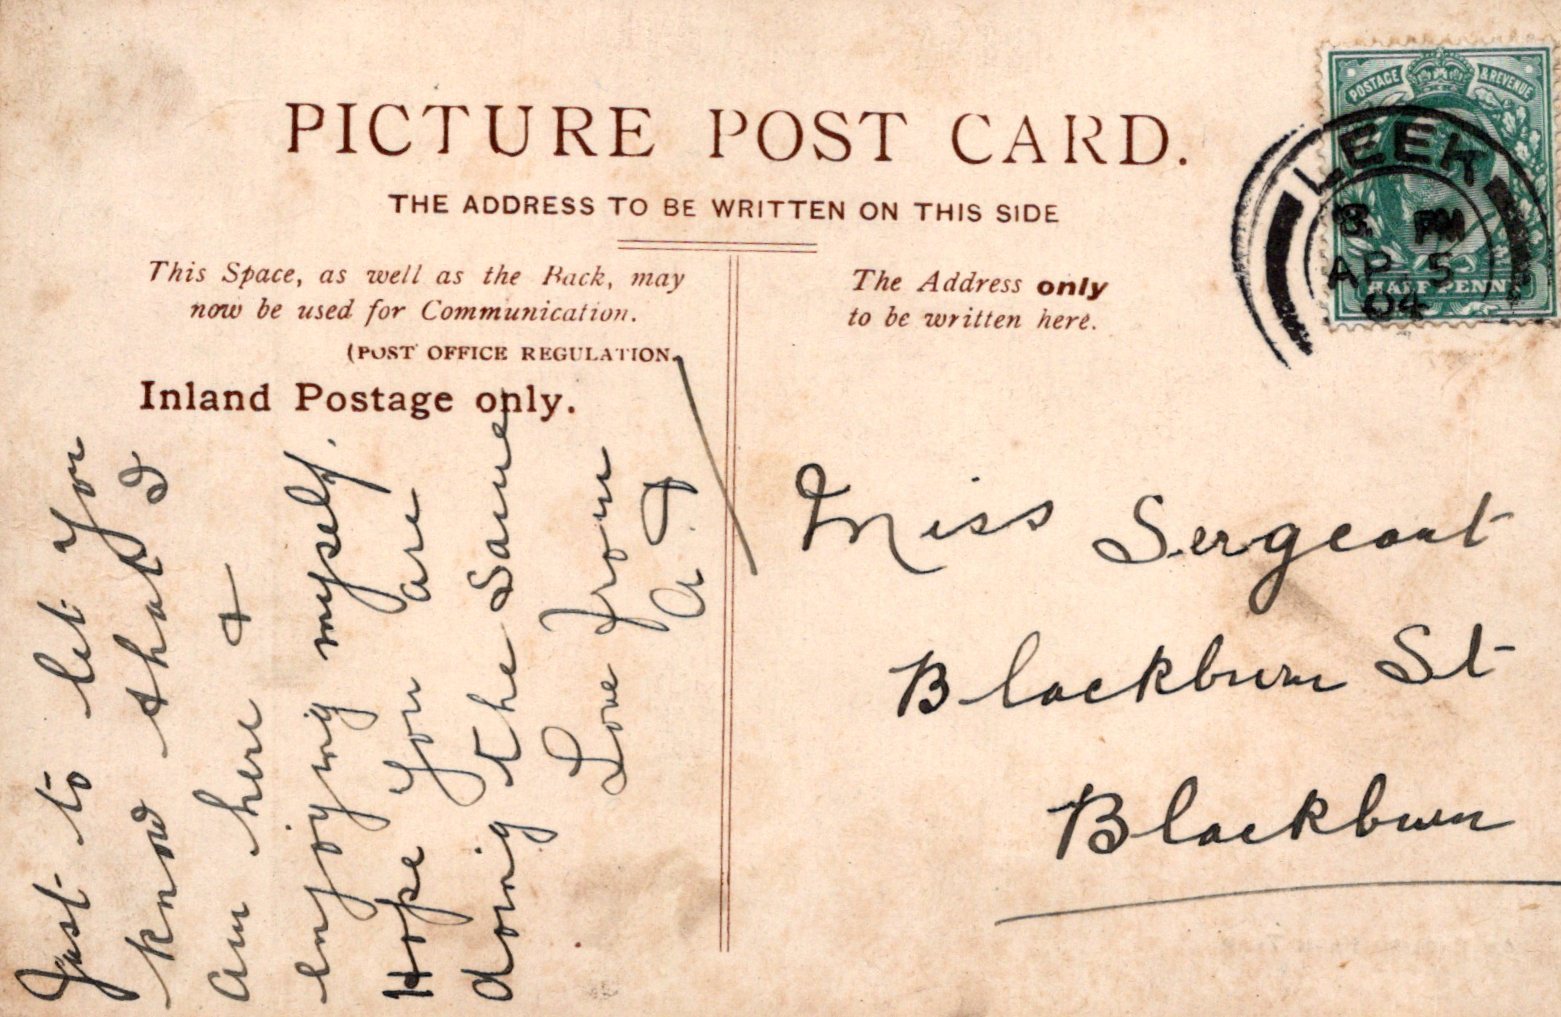 PICTURE POST CARD.
THE ADDRESS TO BE WRITTEN ON THIS SIDE
This Space, as well as the Back, may
now be used for Communication.
(POST OFFICE REGULATION.
Inland Postage only.
The Address only
to be written here.
POSTAGE & REVENUE
HALF PENNY
LEEK
8 PM
AP 5
04
Just to let you
know that I
am here &
enjoying myself.
Hope you are
doing the same
Love from
Miss Sergeant
Blackburn St
Blackburn